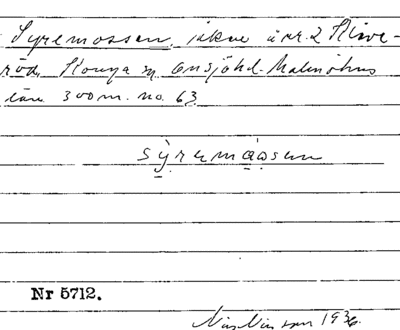 Syremossen, åkrar å nr. 2 Klive-
röd, Konga sn, Onsjöhd. Malmöhus
län. 300 m. no. 63.
sy̱remå̱ssen
Nr 5712.
Nils Nilsson 1936.